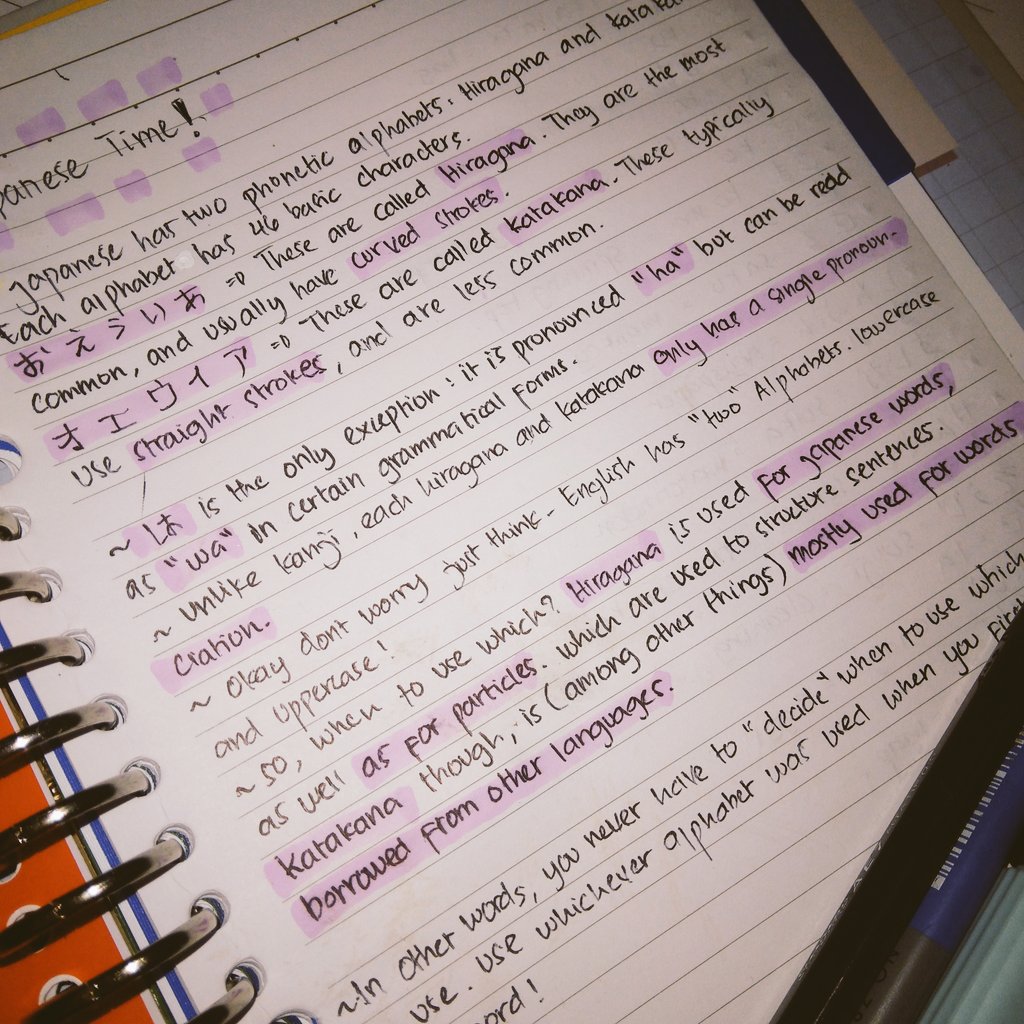 panese Time!
Japanese has two phonetic alphabets. Hiragana and kataka
Each alphabet has 46 basic characters.
おえういあ => These are called Hiragana. They are the most
common, and usually have curved strokes.
オエウイア => These are called katakana. These typically
use straight strokes, and are less common.
~ は is the only exception : it is pronounced "ha" but can be read
as "wa" in certain grammatical forms.
~ unlike kanji, each hiragana and katakana only has a single pronoun-
ciation.
~ Okay dont worry just think - English has "two" Alphabets. lowercase
and uppercase!
~ so, when to use which? Hiragana is used for japanese words,
as well as for particles. which are used to structure sentences.
katakana though, is (among other things) mostly used for words
borrowed from other languages.
~In other words, you never have to "decide" when to use which
use. use whichever alphabet was used when you first
ord!